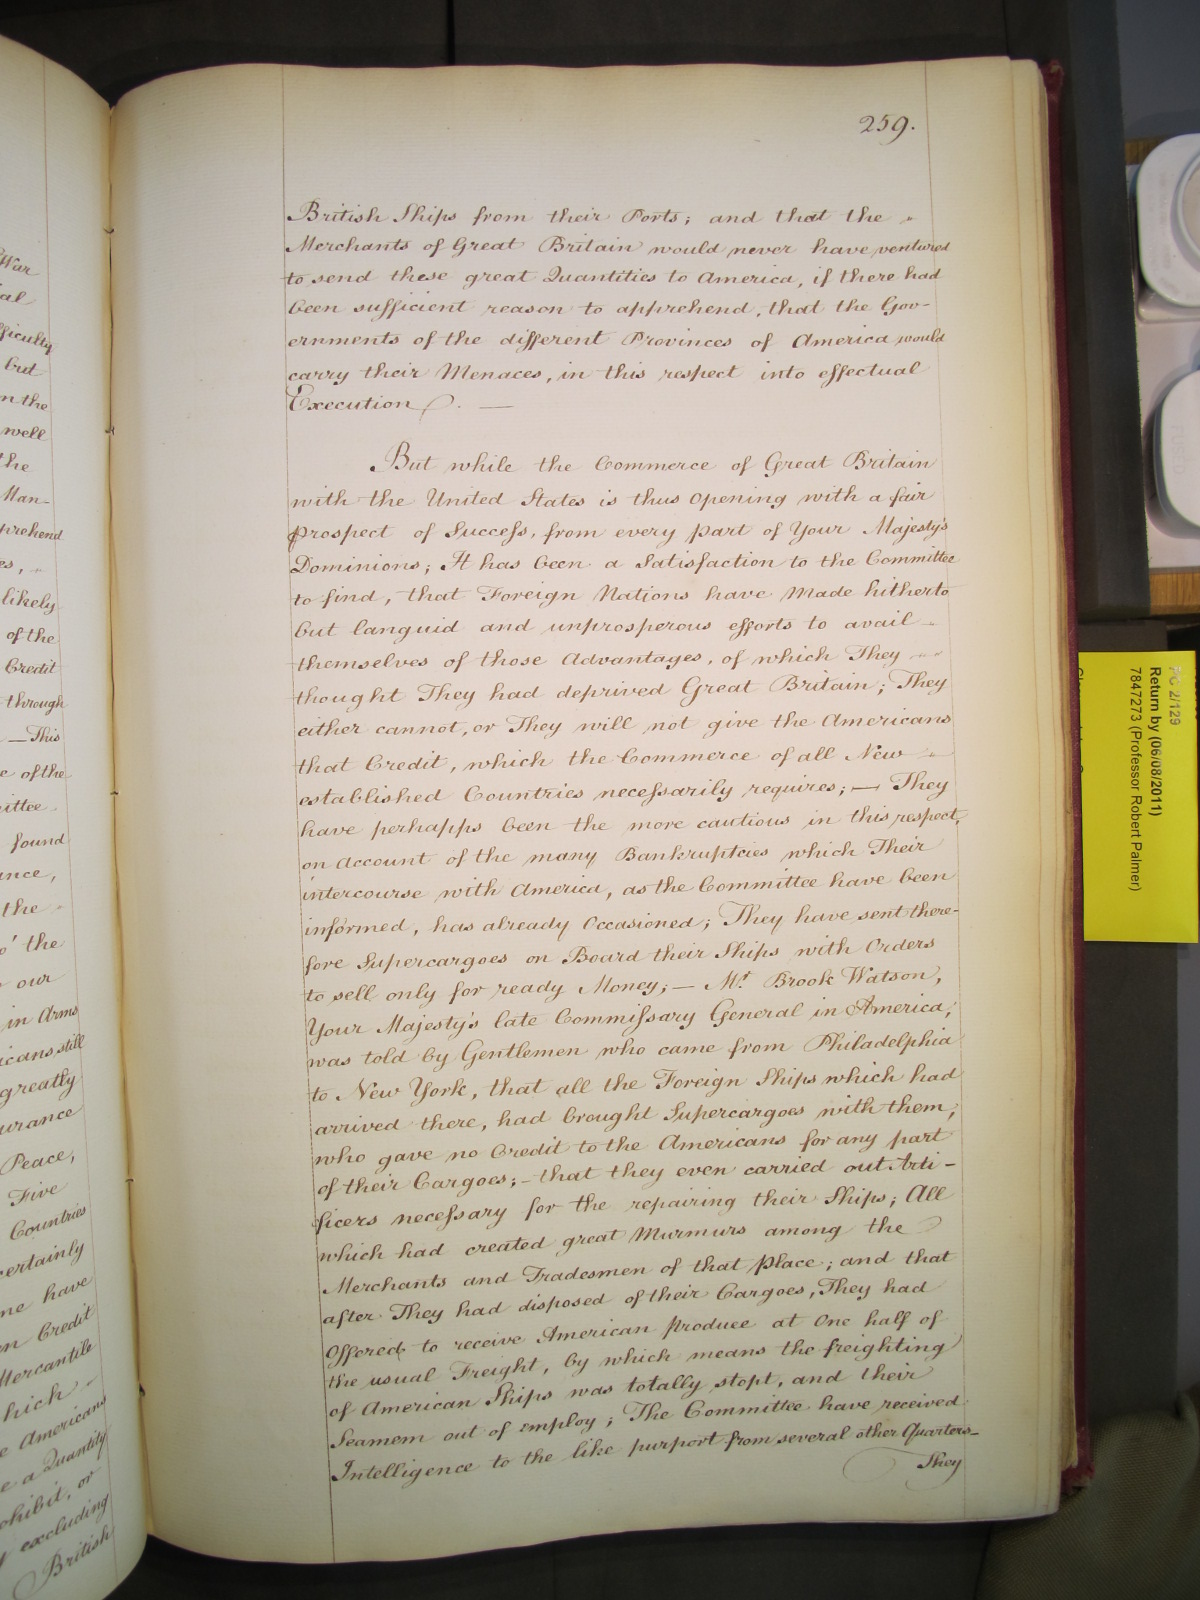 War
ial
fficulty
but
n the
well
the
Man-
prehend
es,
likely
of the
Credit
through
—This
e of the
ittee
found
ance,
the
o' the
our
in Arms
icans still
greatly
urance
Peace,
Five
Countries
ertainly
ne have
n Credit
Mercantile
hich
e Americans
e a Quantity
ohibit, or
excluding
British
259.
British Ships from their Ports; and that the
Merchants of Great Britain would never have ventured
to send these great Quantities to America, if there had
been sufficient reason to apprehend, that the Gov-
ernments of the different Provinces of America would
carry their Menaces, in this respect into effectual
Execution. —
But while the Commerce of Great Britain
with the United States is thus opening with a fair
prospect of Success, from every part of Your Majesty's
Dominions; It has been a Satisfaction to the Committee
to find, that Foreign Nations have made hitherto
but languid and unprosperous efforts to avail
themselves of those Advantages, of which They
thought They had deprived Great Britain; They
either cannot, or They will not give the Americans
that Credit, which the Commerce of all New
established Countries necessarily requires; — They
have perhapps been the more cautious in this respect,
on Account of the many Bankruptcies which Their
intercourse with America, as the Committee have been
informed, has already Occasioned; They have sent there-
fore Supercargoes on Board their Ships with Orders
to sell only for ready Money; — Mr. Brook Watson,
Your Majesty's late Commissary General in America,
was told by Gentlemen who came from Philadelphia
to New York, that all the Foreign Ships which had
arrived there, had brought Supercargoes with them,
who gave no Credit to the Americans for any part
of their Cargoes; - that they even carried out Arti-
ficers necessary for the repairing their Ships; All
which had created great Murmurs among the
Merchants and Tradesmen of that Place; and that
after They had disposed of their Cargoes, They had
Offered to receive American Produce at One half of
the usual Freight, by which means the freighting
of American Ships was totally stopt, and their
Seamem out of employ; The Committee have received
Intelligence to the like purport from several other Quarters-
They
PC 2/129
Return by (06/08/2011)
7847273 (Professor Robert Palmer)